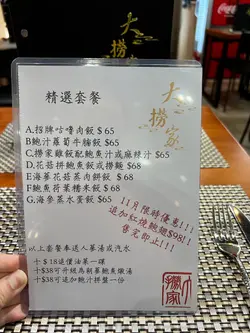 大
撈
家
精選套餐
A.招牌咕嚕肉飯 $65
B.鮑汁蘿蔔牛腩飯 $65
C.撈家雞飯配鮑魚汁或麻辣汁 $65
D.花菇拼鮑魚飯或撈麵 $68
E.海蔘花菇蒸肉餅飯 $68
F.鮑魚荷葉糯米飯 $68
G.海參蒸水蛋飯 $65
11月限時優惠!!!
追加紅燒鮑翅$98!!
售完即止!!!
以上套餐奉送人蔘湯或汽水
+ $18追償油菜一碟
+ $38可升級為順德鮑魚燉湯
+ $38可追加鮑汁拼盤一份